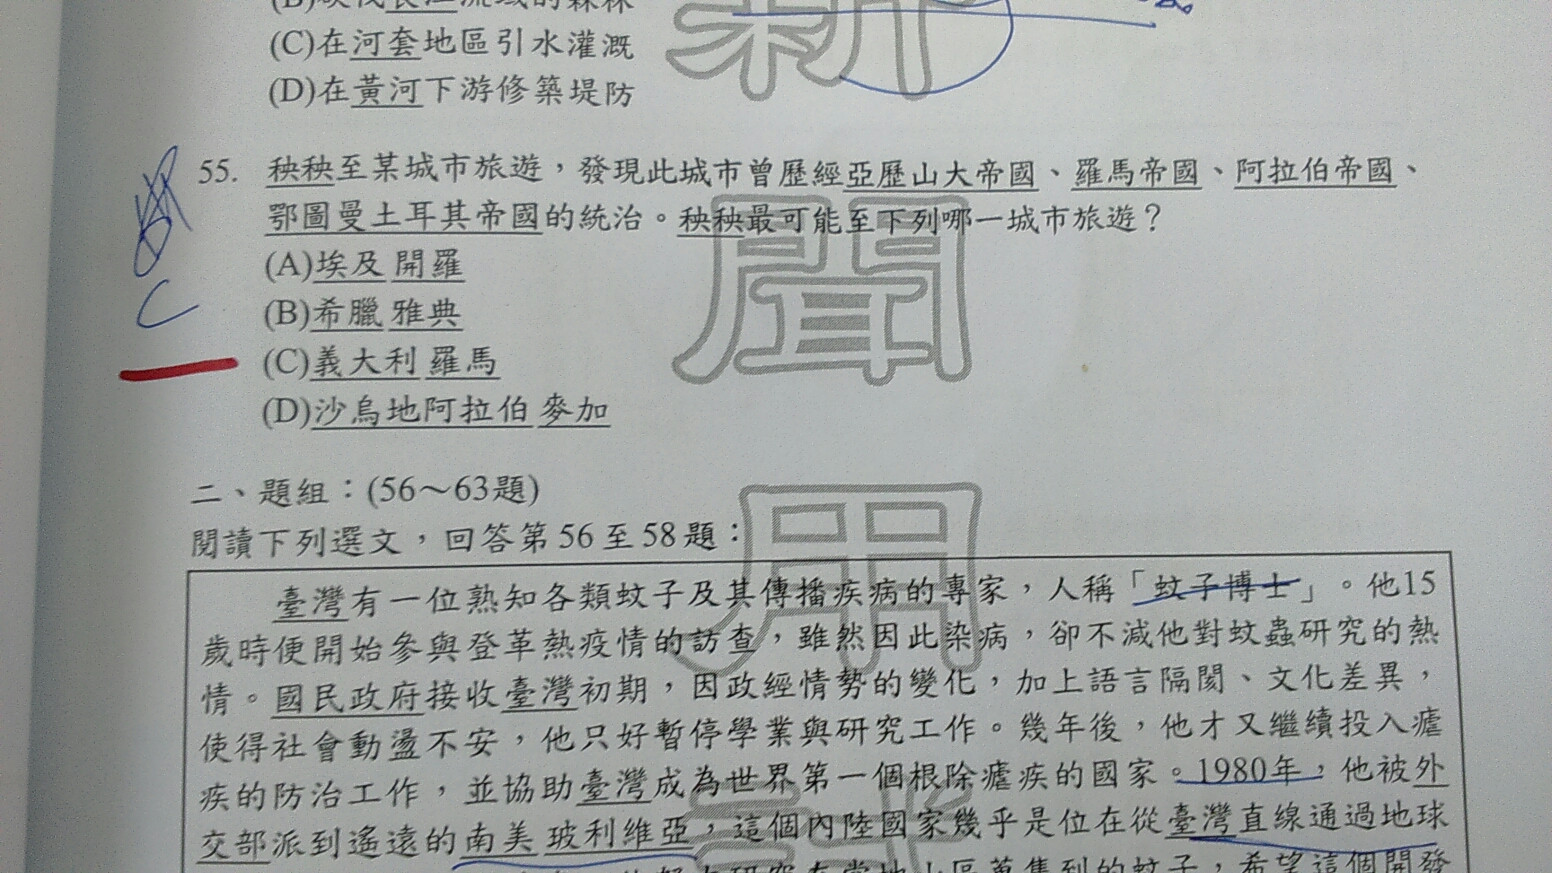 (C)在河套地區引水灌溉
(D)在黃河下游修築堤防
55. 秧秧至某城市旅遊，發現此城市曾歷經亞歷山大帝國、羅馬帝國、阿拉伯帝國、
鄂圖曼土耳其帝國的統治。秧秧最可能至下列哪一城市旅遊？
(A)埃及 開羅
(B)希臘 雅典
C
(C)義大利 羅馬
(D)沙烏地阿拉伯 麥加
二、題組：(56～63題)
閱讀下列選文，回答第56至58題：
臺灣有一位熟知各類蚊子及其傳播疾病的專家，人稱「蚊子博士」。他15
歲時便開始參與登革熱疫情的訪查，雖然因此染病，卻不減他對蚊蟲研究的熱
情。國民政府接收臺灣初期，因政經情勢的變化，加上語言隔閡、文化差異，
使得社會動盪不安，他只好暫停學業與研究工作。幾年後，他才又繼續投入瘧
疾的防治工作，並協助臺灣成為世界第一個根除瘧疾的國家。1980年，他被外
交部派到遙遠的南美 玻利維亞，這個內陸國家幾乎是位在從臺灣直線通過地球